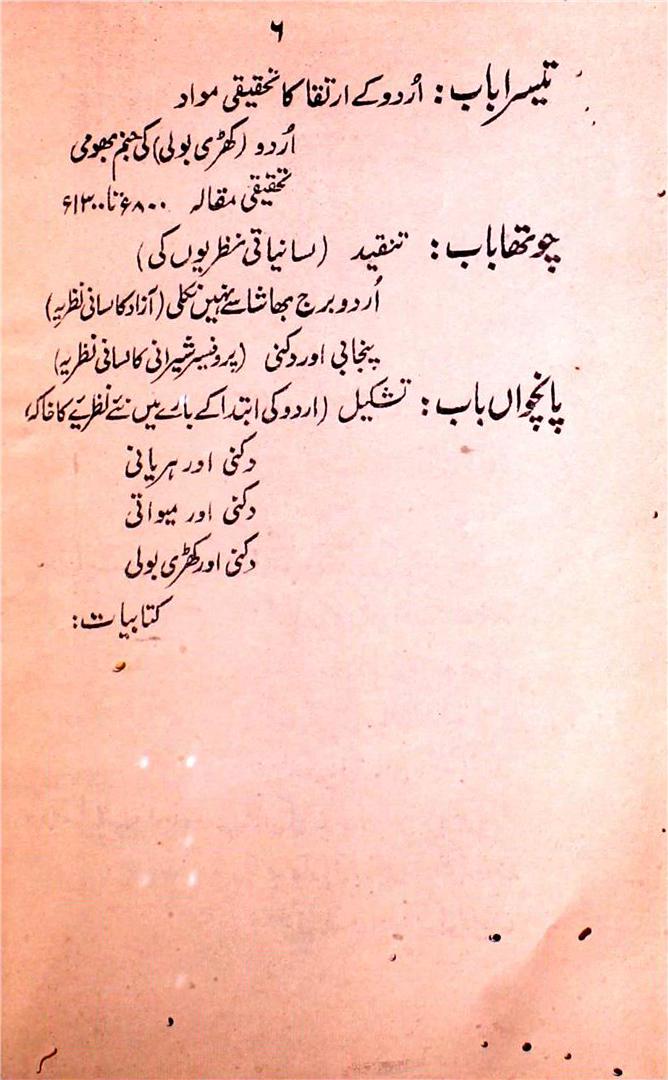 ۶
تیسرا باب: اُردو کے ارتقا کا تحقیقی مواد
اُردو (کھڑی بولی) کی جنم بھومی
تحقیقی مقالہ ۸۰۰ء تا ۱۳۰۰ء
چوتھا باب: تنقید (لسانیاتی نظریوں کی)
اُردو برج بھاشا سے نہیں نکلی (آزاد کا لسانی نظریہ)
پنجابی اور دکنی (پروفیسر شیرانی کا لسانی نظریہ)
پانچواں باب: تشکیل (اردو کی ابتدا کے بارے میں نئے نظریے کا خاکہ)
دکنی اور ہریانی
دکنی اور میواتی
دکنی اور کھڑی بولی
کتابیات: